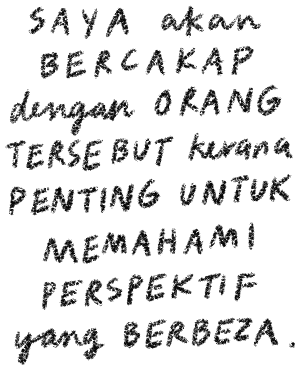 SAYA akan
BERCAKAP
dengan ORANG
TERSEBUT kerana
PENTING UNTUK
MEMAHAMI
PERSPEKTIF
yang BERBEZA.